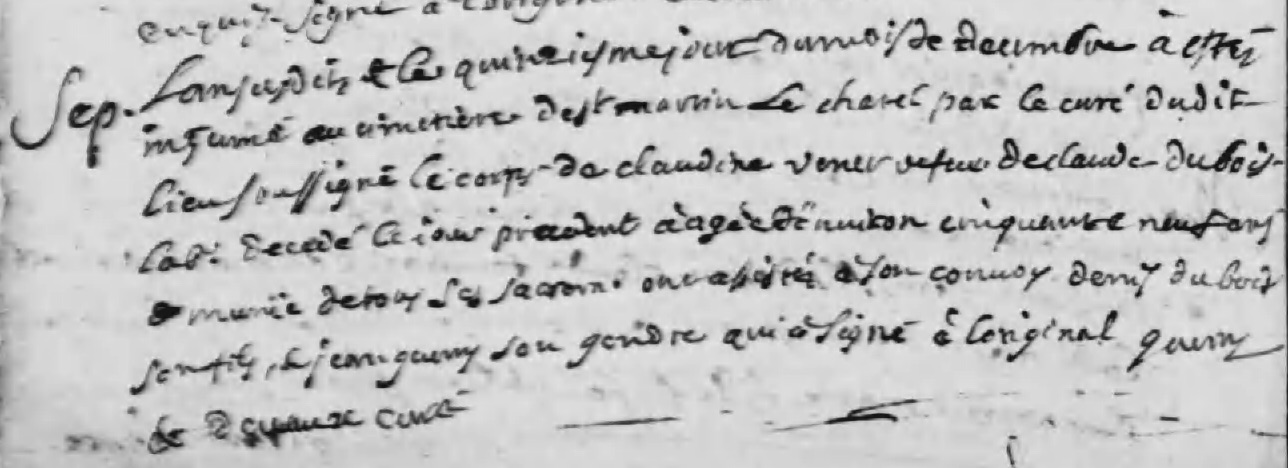 enquis signé à l'original
Sep. L'an susdit et le quinziesme jour du mois de decembre à esté
inhumé au cimetiere de st martin le chatel par le curé dudit
lieu soussigné le corps de claudine vener vefue de claude du bois
lab: decedé le iour precedent àagée d'enuiron cinquante neuf ans
& munie de tous ses sacrem: ont assisté à son conuoy denis du bois
son fils, & jean guerry son gendre qui à signé à l'original guerry
& curé